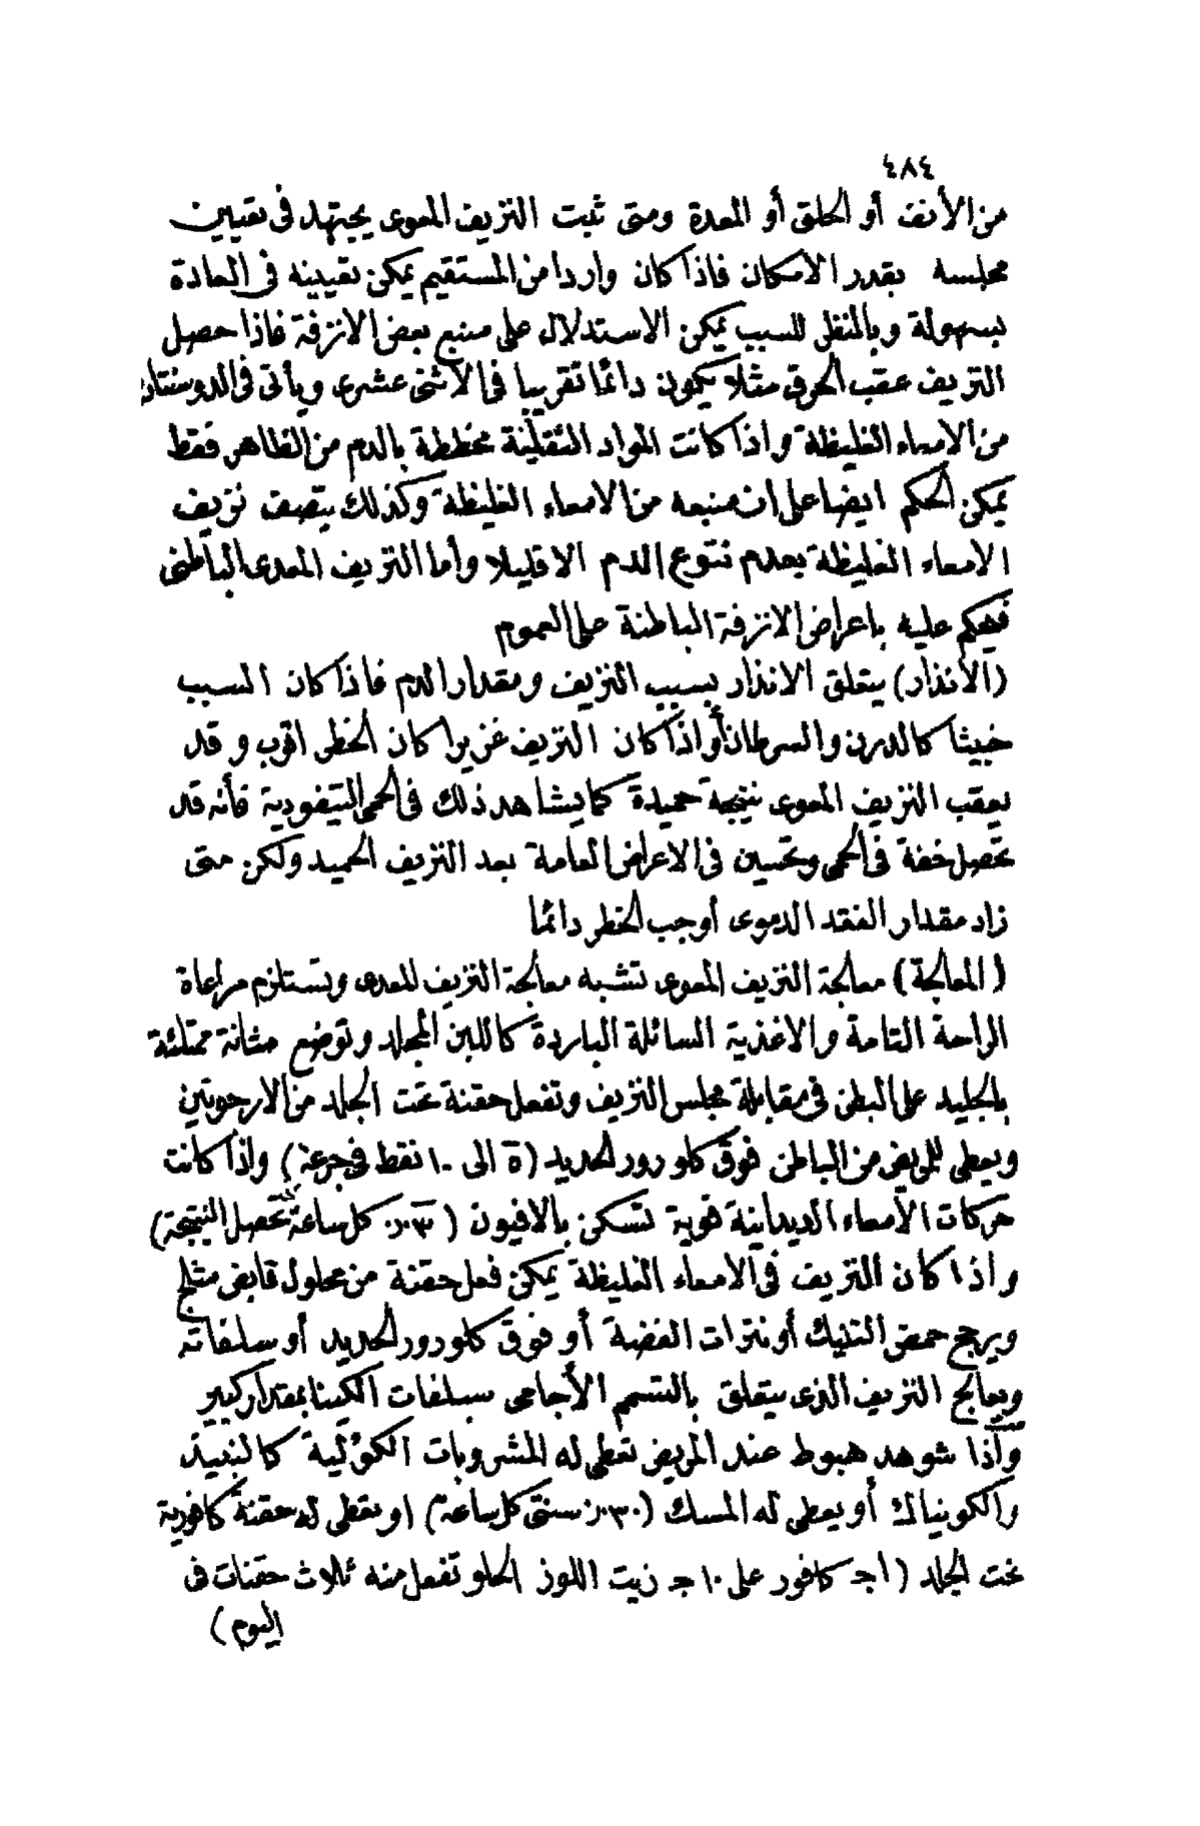 ٤٨٤
من الأنف أو الحلق أو المعدة ومتى ثبت النزيف المعوى يجتهد فى تعيين
مجلسه بقدر الامكان فاذا كان واردا من المستقيم يمكن تعيينه فى العادة
بسهولة وبالنظر للسبب يمكن الاستدلال على منبع بعض الانزفة فاذا حصل
النزيف عقب الحرق مثلا يكون دائما تقريبا فى الاثنى عشرى ويأتى فى الدوسنتاريا
من الامعاء الغليظة واذا كانت المواد الثفلية مخططة بالدم من الظاهر فقط
يمكن الحكم ايضا على ان منبعه من الامعاء الغليظة وكذلك يتصف نزيف
الامعاء الغليظة بعدم تنوع الدم الا قليلا وأما النزيف المعدى الباطنى
فيحكم عليه باعراض الانزفة الباطنة على العموم
(الأنذار) يتعلق الانذار بسبب النزيف ومقدار الدم فاذا كان السبب
خبيثا كالدرن والسرطان أو اذا كان النزيف غزيرا كان الخطر اقرب وقد
يعقب النزيف المعوى نتيجة حميدة كما يشاهد ذلك فى الحمى التيفودية فأنه قد
تحصل خفة فى الحمى وتحسين فى الاعراض العامة بعد النزيف الحميد ولكن متى
زاد مقدار الفقد الدموى أوجب الخطر دائما
(المعالجة) معالجة النزيف المعوى تشبه معالجة النزيف المعدى وتستلزم مراعاة
الراحة التامة والاغذية السائلة الباردة كاللبن المجلد وتوضع مثانة ممتلئة
بالجليد على البطن فى مقابلة مجلس النزيف وتفعل حقنة تحت الجلد من الارجوتين
ويعطى للمريض من الباطن فوق كلورور الحديد (٥ الى ١٠ نقط فى جرعة) واذا كانت
حركات الأمعاء الديدانية قوية تسكن بالافيون ( كل ساعة حتى تحصل النتيجة)
واذا كان النزيف فى الامعاء الغليظة يمكن فعل حقنة من محلول قابض مثلج
ويرجح حمض التنيك أو نترات الفضة أو فوق كلورور الحديد أو سلفاته
ويعالج النزيف الذى يتعلق بالتسمم الأجامى بسلفات الكينا بمقدار كبير
واذا شوهد هبوط عند المريض تعطى له المشروبات الكؤلية كالنبيذ
والكونياك أو يعطى له المسك ( سنتى كل ساعة) او تعطى له حقنة كافورية
تحت الجلد (١ جـ كافور على ١٠ جـ زيت اللوز الحلو تفعل منه ثلاث حقنات فى
اليوم)